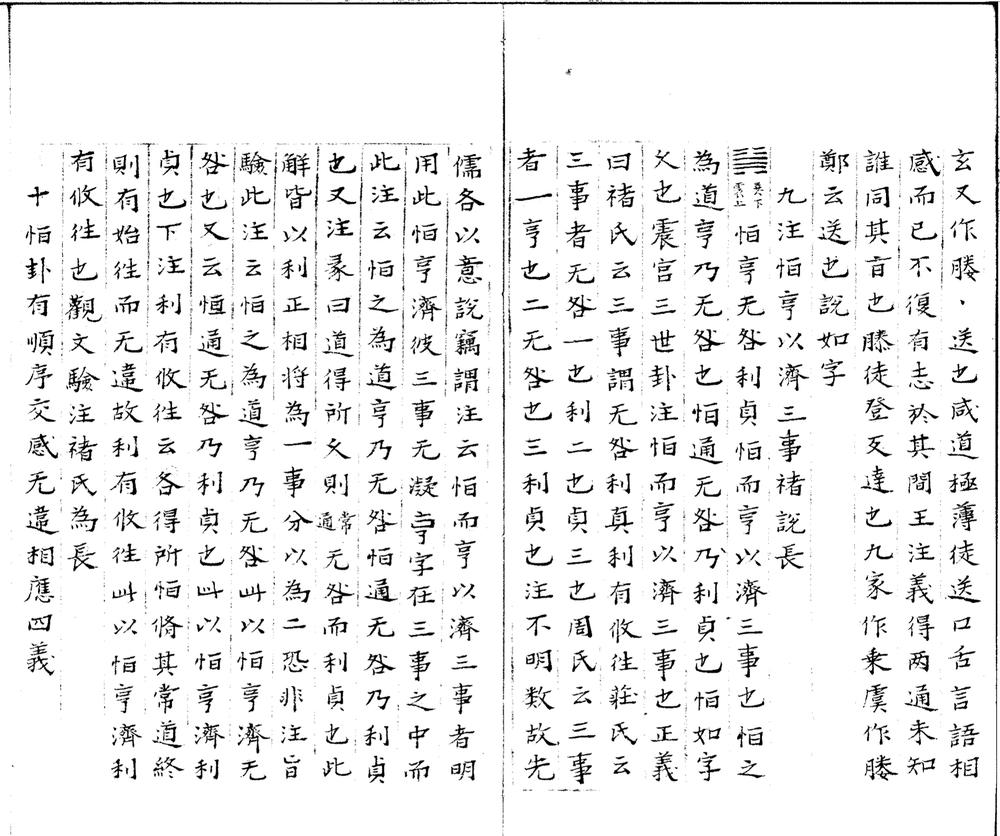 玄又作滕、送也咸道極薄徒送口舌言語相
感而已不復有志於其間王注義得两通未知
誰同其旨也滕徒登反達也九家作乗虞作滕
鄭云送也說如字
九注恒亨以濟三事褚說長
䷟巽下震上恒亨无咎利貞恒而亨以濟三事也恒之
為道亨乃无咎也恒通无咎乃利貞也恒如字
久也震宮三世卦注恒而亨以濟三事也正義
曰褚氏云三事謂无咎利真利有攸往莊氏云
三事者无咎一也利二也貞三也周氏云三事
者一亨也二无咎也三利貞也注不明数故先
儒各以意說竊謂注云恒而亨以濟三事者明
用此恒亨濟彼三事无凝亨字在三事之中而
此注云恒之為道亨乃无咎恒通无咎乃利貞
也又注彖曰道得所久則常通无咎而利貞也此
解皆以利正相將為一事分以為二恐非注旨
驗此注云恒之為道亨乃无咎此以恒亨濟无
咎也又云恒通无咎乃利貞也此以恒亨濟利
貞也下注利有攸往云各得所恒脩其常道終
則有始往而无違故利有攸往此以恒亨濟利
有攸往也觀文驗注褚氏為長
十恒卦有順序交感无違相應四義